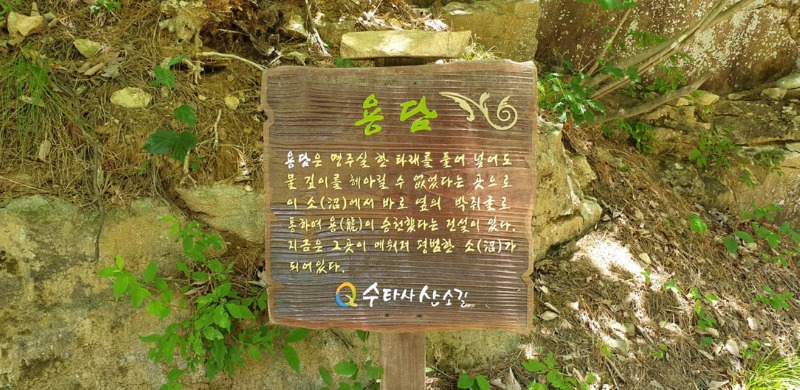 용담
용담은 명주실 한 타래를 풀어 넣어도
물 깊이를 헤아릴 수 없었다는 곳으로
이 소(沼)에서 바로 옆의 박쥐굴로
통하여 용(龍)이 승천했다는 전설이 있다.
지금은 그곳이 메워져 평범한 소(沼)가
되어있다.
수타사 산소길